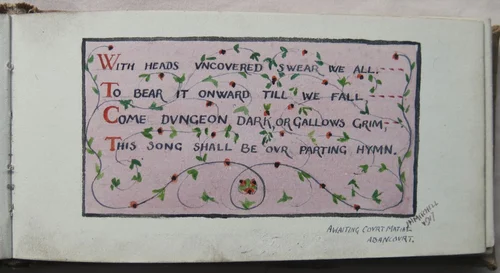 WITH HEADS VNCOVERED SWEAR WE ALL
TO BEAR IT ONWARD TILL WE FALL
COME DVNGEON DARK OR GALLOWS GRIM,
THIS SONG SHALL BE OVR PARTING HYMN.
AWAITING COURT MARTIAL
ABANCOURT.